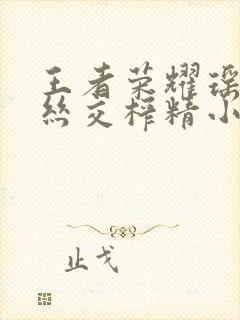 王者荣耀瑶
丝交榨精小
止戈